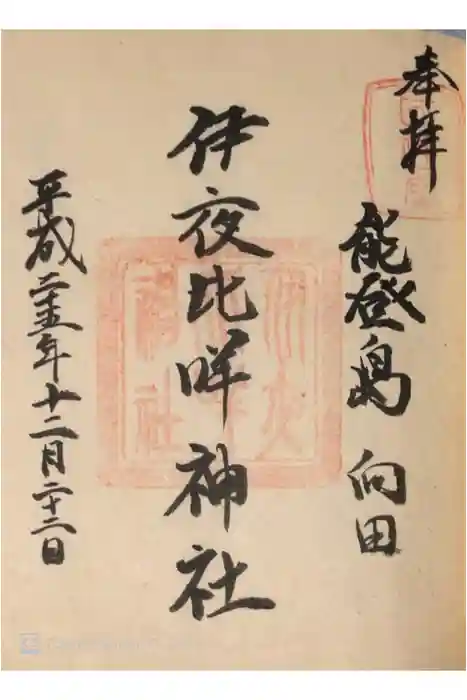 奉拝
能登島 向田
伊夜比咩神社
平成二十五年十二月二十二日